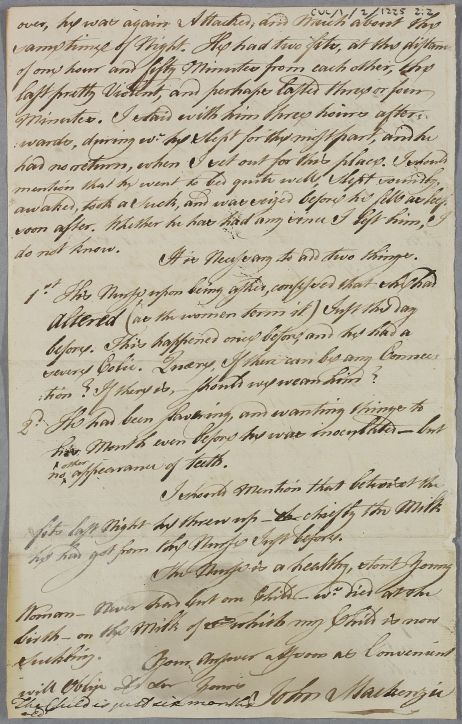 CUL/1/2/1225 2:2
over, he was again Attacked, and Much about the
same time of Night. He had two fits, at the distance
of one hour and fifty Minutes from each other, the
last pretty Violent, and perhaps lasted three or four
Minutes. I staid with him three hours after-
wards, during wh. he slept for the most part, and he
had no return, when I set out for this place. I should
mention that he went to bed quite well, slept soundly,
awaked, took a Suck, and was seized before he fell asleep
soon after. Whether he has had any since I left him, I
do not know.
It is Necessary to add two things.
1st. The Nurse upon being asked, confessed that she had
altered (as the women term it) Just the day
before. This happened once before, and he had a
severe Colic. Quere, If there can be any Connec-
:tion? If there is, should we wean him?
2d. He had been slavering, and wanting things to
his Mouth even before he was inoculated — but
no other appearance of teeth.
I should Mention that betwixt the
fits last Night he threw up — chiefly the Milk
he had got from the Nurse Just before.
The Nurse is a healthy, stout Young
Woman — Never had but one Child — wh. died at the
birth — on the Milk of which my Child is now
suckling.
Your Answer as soon as Convenient
will Oblige Dr Sir Yours
The Child is just six months John Mackenzie
old